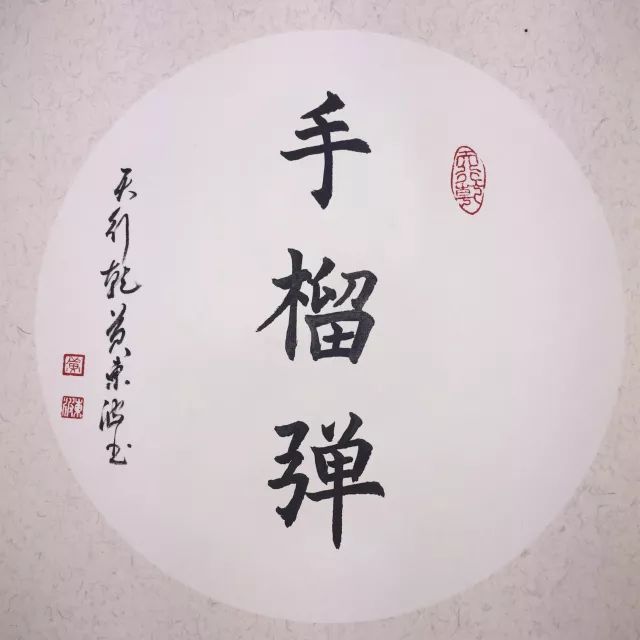 手榴弹
天行乾黄东波书